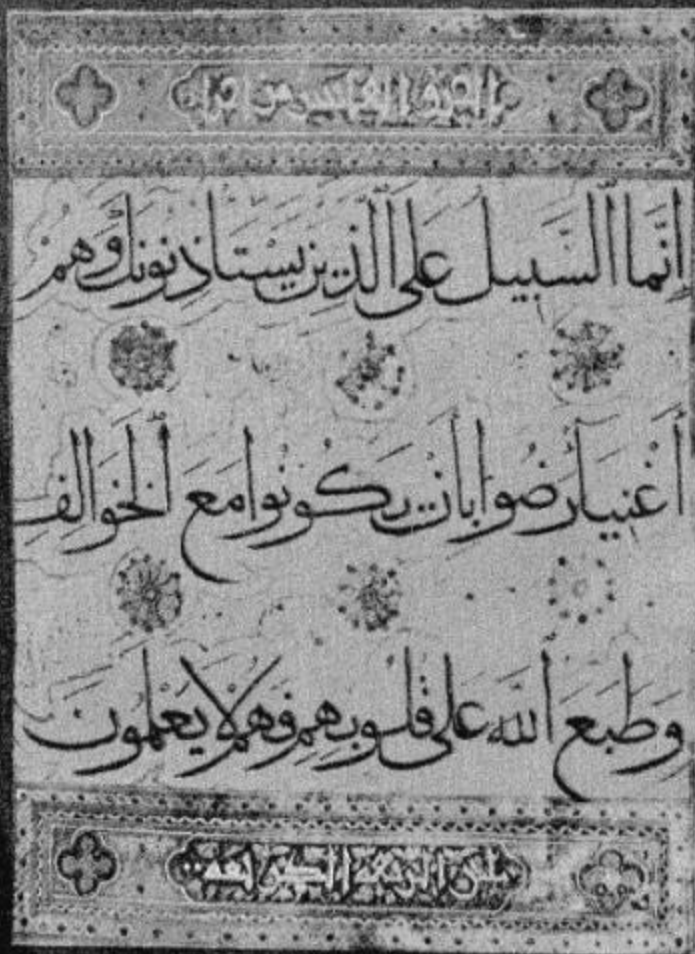 إِنَّمَا ٱلسَّبِيلُ عَلَى ٱلَّذِينَ يَسْتَأْذِنُونَكَ وَهُمْ
أَغْنِيَاءُ رَضُوا بِأَنْ يَكُونُوا مَعَ ٱلْخَوَالِفِ
وَطَبَعَ ٱللَّهُ عَلَى قُلُوبِهِمْ فَهُمْ لَا يَعْلَمُونَ